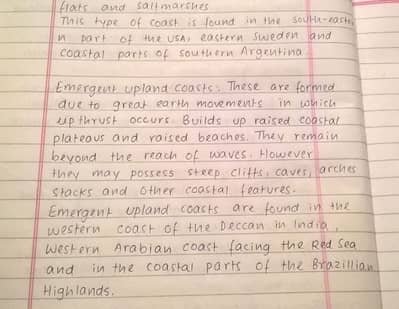 flats and saltmarshes
This type of coast is found in the south-easter
n part of the USA, eastern Sweden and
coastal parts of southern Argentina.
Emergent upland coasts: These are formed
due to great earth movements in which
up thrust occurs. Builds up raised coastal
plateaus and raised beaches. They remain
beyond the reach of waves. However
they may possess steep cliffs, caves, arches
stacks and other coastal features.
Emergent upland coasts are found in the
western coast of the Deccan in India,
Western Arabian coast facing the Red Sea
and in the coastal parts of the Brazillian
Highlands.